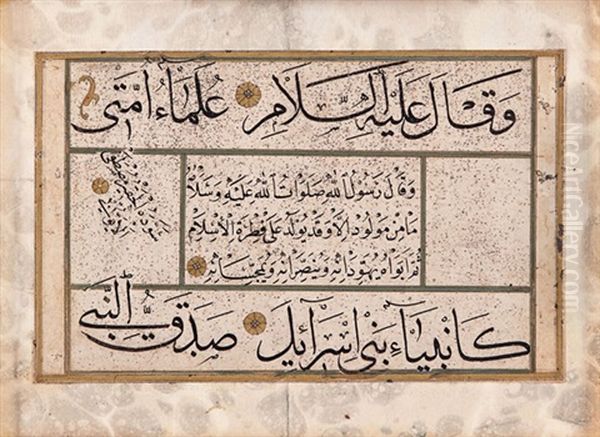 وَقَالَ عَلَيْهِ السَّلَامُ عُلَمَاءُ اُمَّتِى
وَقَالَ رَسُولُ اللهِ صَلَوَاتُ اللهِ عَلَيْهِ وَسَلَامُ
مَا مِنْ مَوْلُودٍ اِلَّا وَقَدْ يُولَدُ عَلَى فِطْرَةِ الْاِسْلَامِ
ثُمَّ اَبَوَاهُ يُهَوِّدَانِهِ وَيُنَصِّرَانِهِ وَيُمَجِّسَانِهِ
كَاَنْبِيَاءِ بَنِى اِسْرَائِيلَ صَدَقَ النَّبِىُّ
NiceArtGallery.com